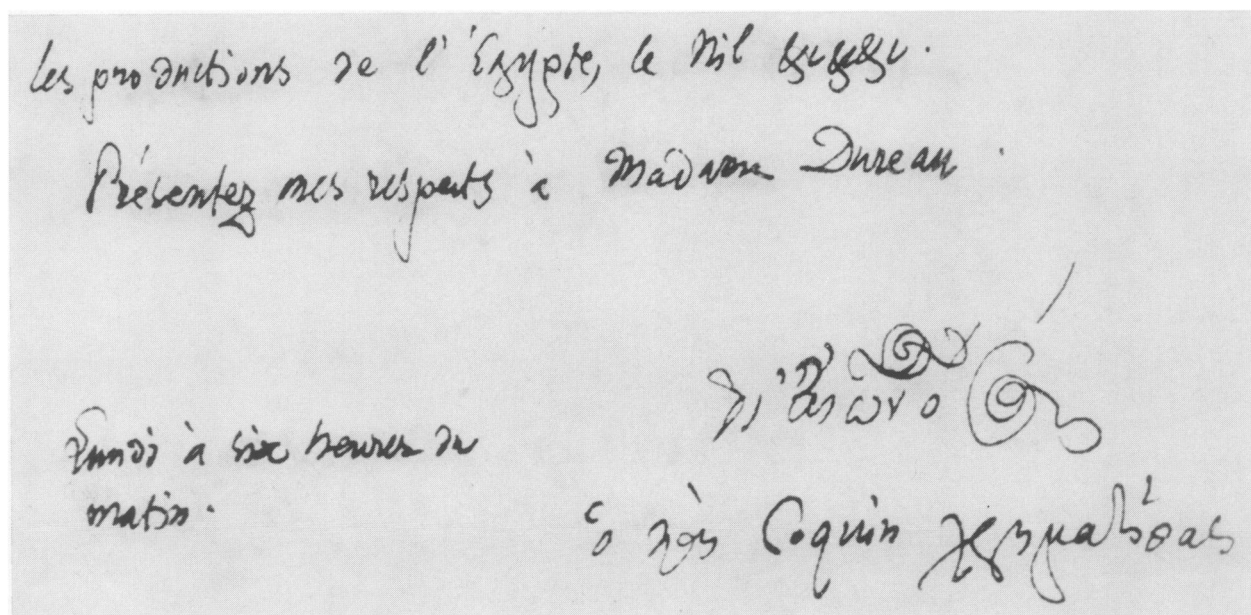 les productions de l'Égypte, le Nil &c&c&c.
Présentez mes respects à Madame Dureau.
Lundi à six heures du
matin.
ὁ πρὶν Coquin χρηματίσας